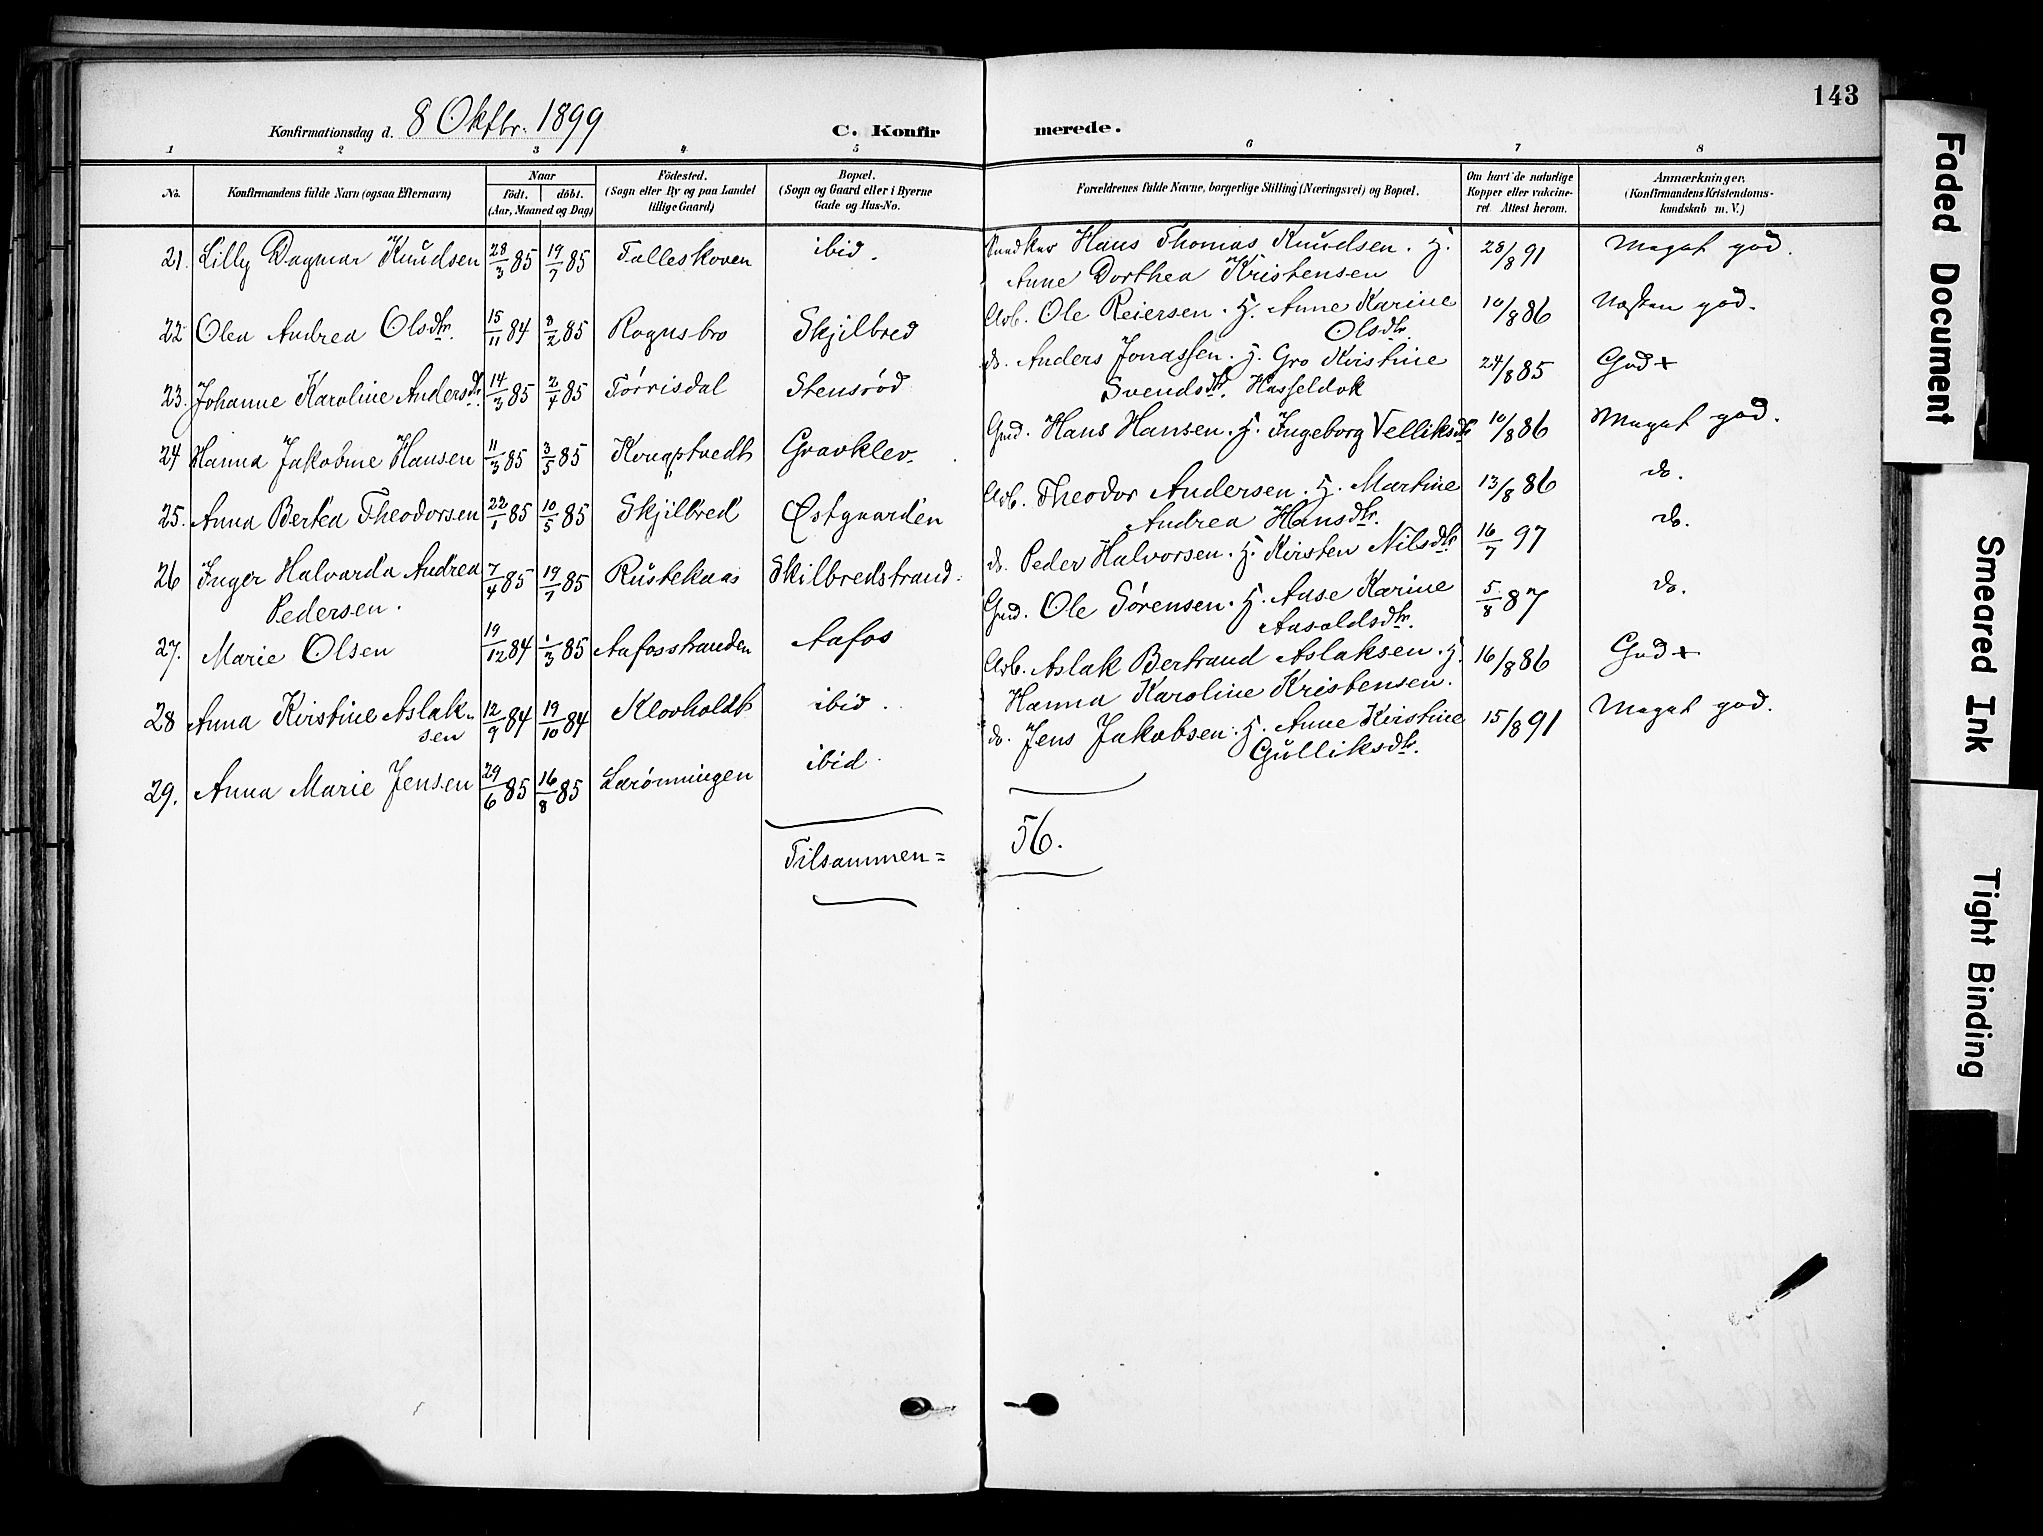 143
Konfirmationsdag d. 8 Oktbr. 1899
C. Konfirmerede.
1 2 3 4 5 6 7 8
No. Konfirmandens fulde Navn (ogsaa Efternavn) Naar født. døbt. (Aar, Maaned og Dag) Fødested. (Sogn eller By og paa Landet tillige Gaard) Bopæl. (Sogn og Gaard eller i Byerne Gade og Hus-No. Forældrenes fulde Navne, borgerlige Stilling (Næringsvei) og Bopæl. Om havt de naturlige Kopper eller vaccineret. Attest herom. Anmærkninger, (Konfirmandens Kristendomskundskab m. V.)
21. Lilly Dagmar Knudsen 28/3 85 19/7 85 Falleskoven ibid. Hans Thomas Knudsen. H. 28/8 91 Meget god.
Anne Dorthea Kristensen
22 Olea Andrea Olsdtr. 15/11 84 8/2 85 Rognsbro Skjilbred Arb. Ole Reiersen. H. Anne Karine 10/8 86 Næsten god.
Olsdtr.
23. Johanne Karoline Andersdtr. 14/3 85 2/4 85 Tørrisdal Stensrød do. Anders Jonassen. H. Gro Kristine 24/8 85 God +
Svendsdtr. Hasseldok
24 Hanna Jakobine Hansen 11/3 85 3/5 85 Gravklev Gmd. Hans Hansen. H. Ingeborg Velliksdtr 10/8 86 Meget god.
25. Anna Bertea Theodorsen 22/1 85 10/5 85 Skjilbred Østgaarden Arb. Theodor Andersen. H. Martine 13/8 86 do.
Andrea Hansdtr.
26 Inger Halvarda Andrea 7/4 85 19/7 85 Rustekaas Skilbredstrand. do. Peder Halvorsen. H. Kirsten Nilsdtr 16/7 97 do.
Pedersen.
27. Marie Olsen 19/12 84 1/3 85 Aafosstranden Aafos Gmd. Ole Sørensen. H. Anse Karine 5/8 87 do.
Aasoldsdtr.
28 Anna Kirstine Aslak- 12/9 84 19/10 84 Klovholdt ibid. Arb. Aslak Bertrand Aslaksen. H. 16/8 86 God +
sen Hanna Karoline Kristensen.
29. Anna Marie Jensen 29/6 85 16/8 85 Larønningen ibid. do. Jens Jakobsen. H. Anne Kirstine 15/8 91 Meget god.
Gulliksdtr.
Tilsammen = 56.
Faded Document
Smeared Ink
Tight Binding